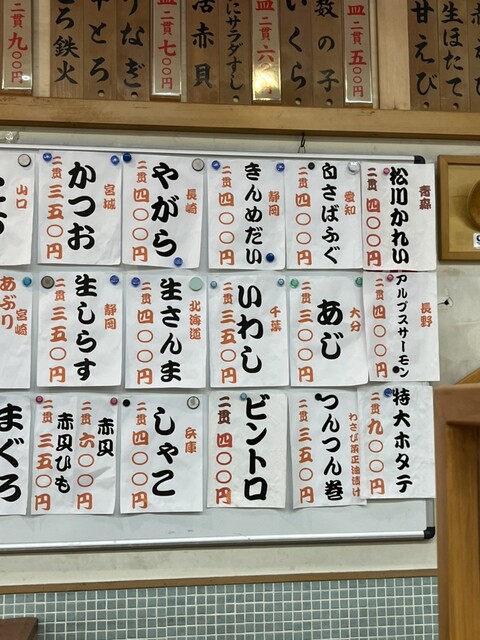 生ほたて
甘えび
二貫五〇〇円
数の子
いくら
二貫六〇〇円
かにサラダすし
赤貝
二貫七〇〇円
うなぎ
中とろ
とろ鉄火
二貫九〇〇円
青森
松川かれい
二貫四〇〇円
愛知
白さばふぐ
二貫四〇〇円
静岡
きんめだい
二貫四〇〇円
長崎
やがら
二貫四〇〇円
宮城
かつお
二貫三五〇円
山口
長野
アルプスサーモン
二貫四〇〇円
大分
あじ
二貫三五〇円
千葉
いわし
二貫三五〇円
北海道
生さんま
二貫四〇〇円
静岡
生しらす
二貫三五〇円
宮崎
あぶり
特大ホタテ
二貫九〇〇円
わさび茶正油漬け
つんつん巻
二貫三五〇円
ビントロ
二貫四〇〇円
兵庫
しゃこ
二貫四〇〇円
赤貝
二貫六〇〇円
赤貝ひも
二貫三五〇円
まぐろ